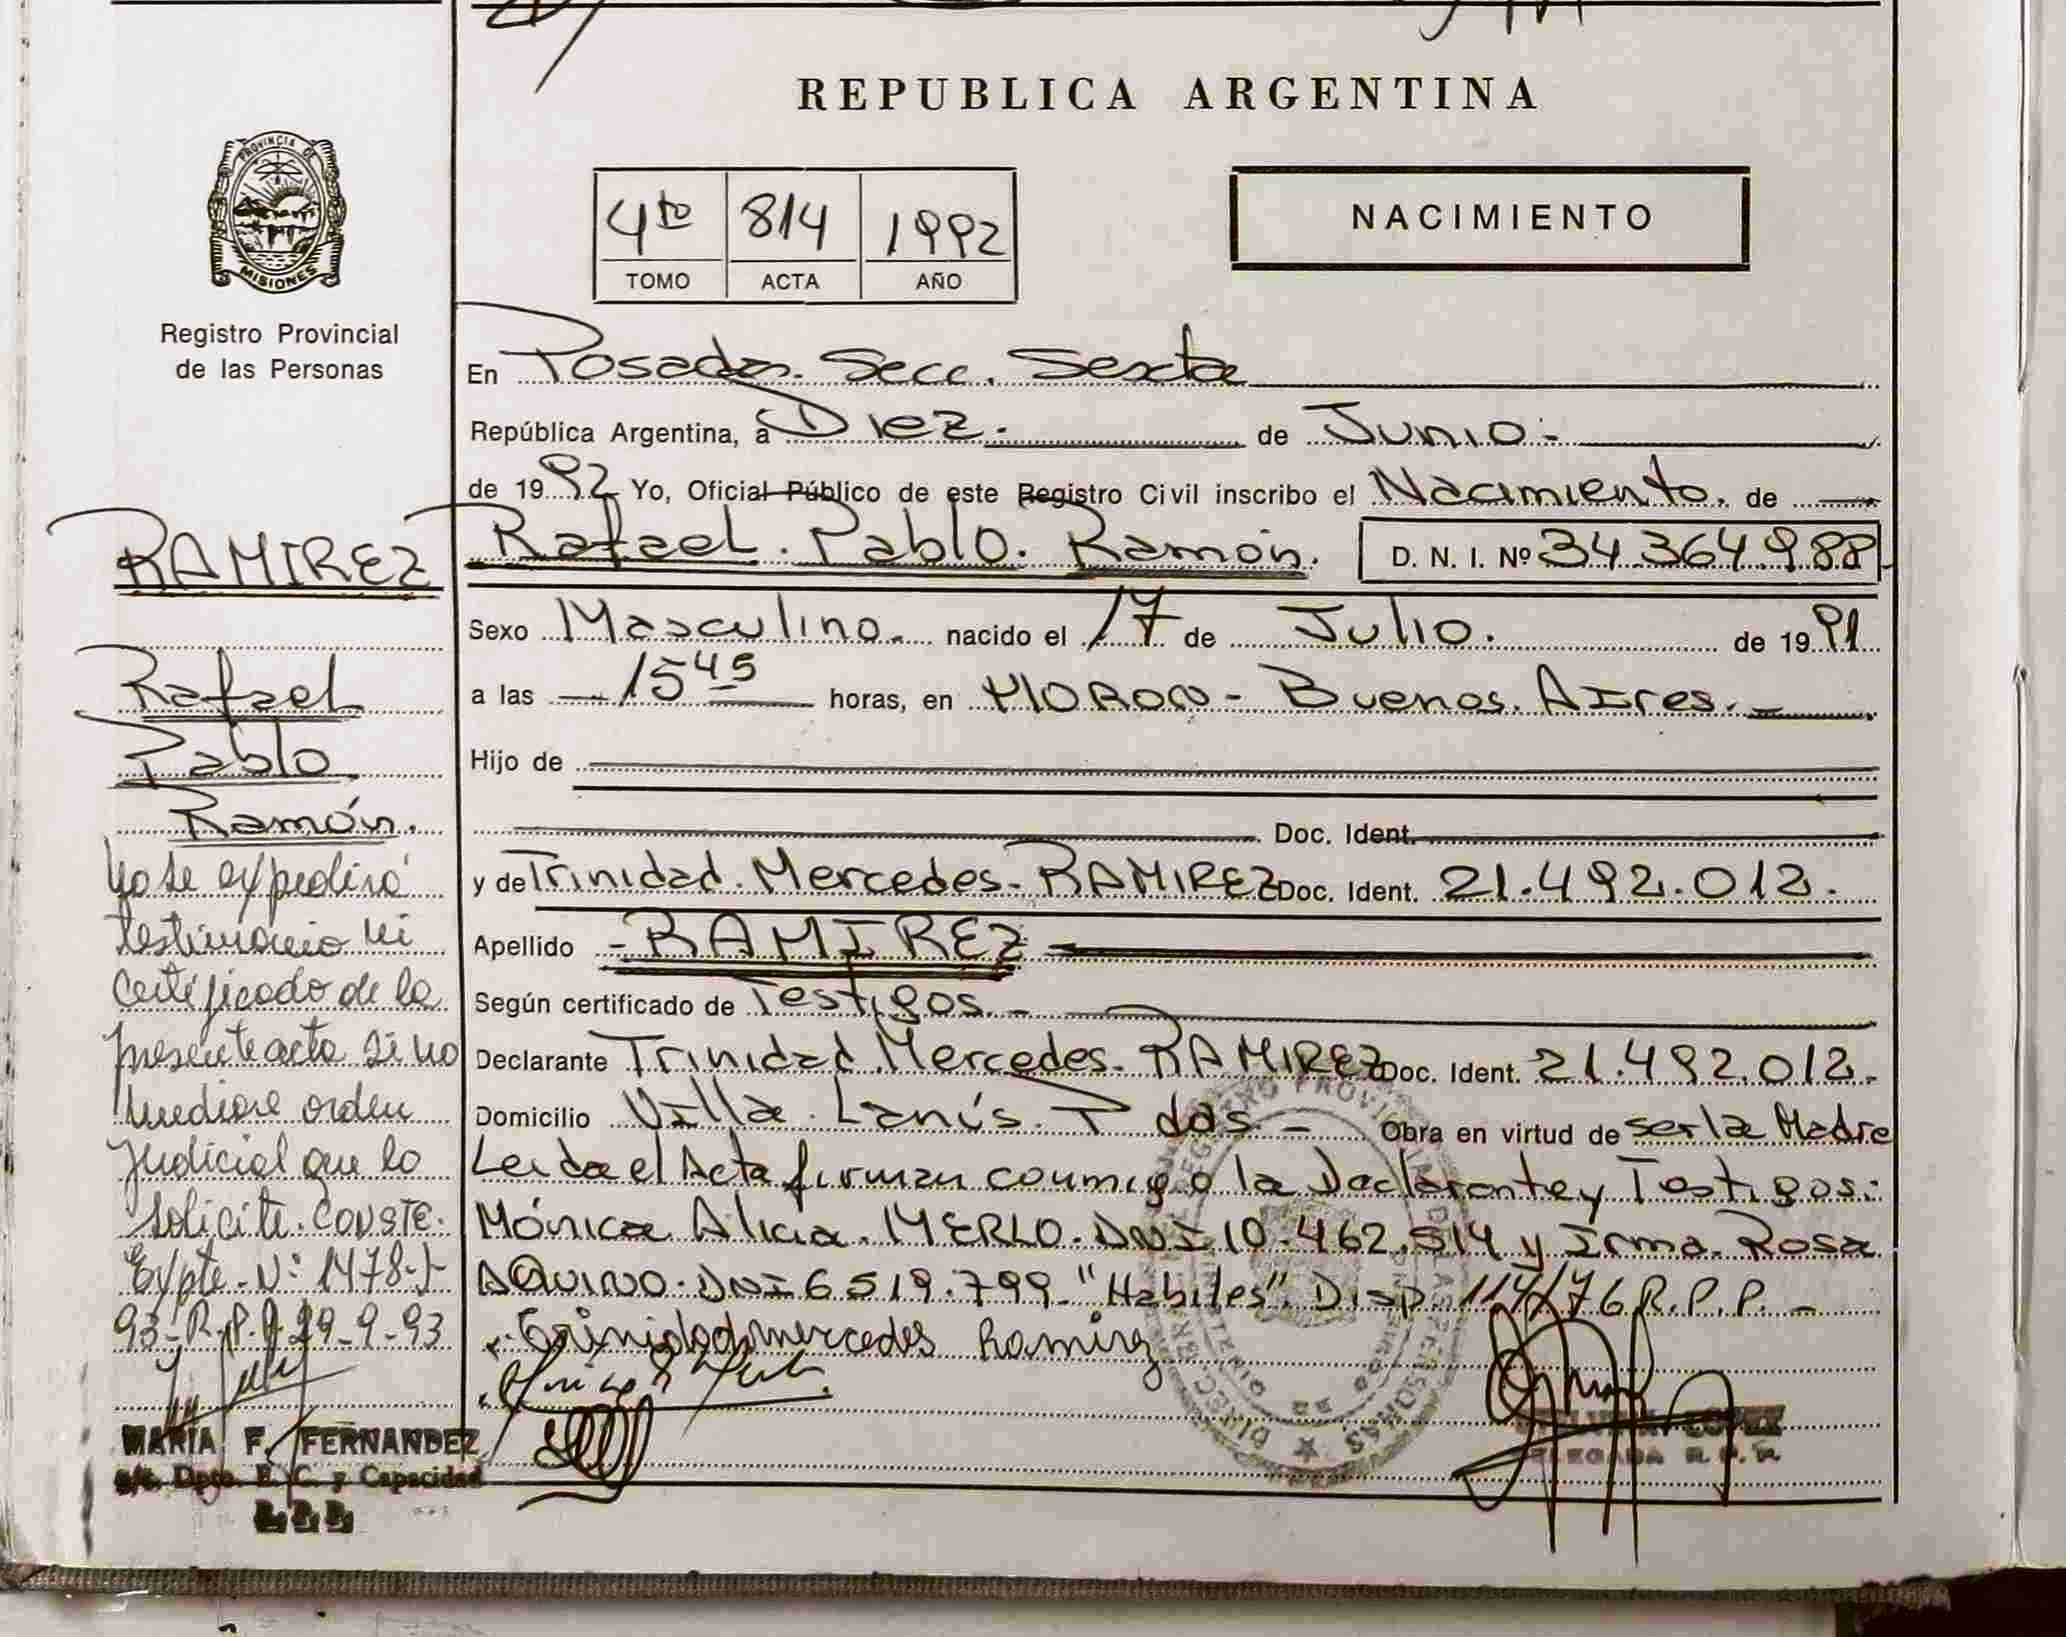 REPUBLICA ARGENTINA
PROVINCIA DE
MISIONES
Registro Provincial
de las Personas
4to 814 1992
TOMO ACTA AÑO
NACIMIENTO
En Posadas. Secc. Sexta
República Argentina, a Diez. de Junio.-
de 1992 Yo, Oficial Público de este Registro Civil inscribo el Nacimiento. de
Rafael. Pablo. Ramón. D. N. I. Nº 34.364.988
Sexo Masculino. nacido el 17 de Julio. de 1991
a las 15 45 horas, en MORON - Buenos. Aires. -
Hijo de
Doc. Ident.
y de Trinidad. Mercedes - RAMIREZ Doc. Ident. 21.492.012.
Apellido - RAMIREZ
Según certificado de Testigos. -
Declarante Trinidad. Mercedes. RAMIREZ Doc. Ident. 21.492.012.
Domicilio Villa. Lanús. P das - Obra en virtud de ser la Madre
Leida el Acta firman conmigo la Declarante y Testigos:
Mónica Alicia. MERLO. DNI 10.462.514 y Irma. Rosa
AQUINO. DNI 6519.799 - "Habiles". Disp. 114/76 R.P.P. -
Trinidad mercedes Ramirez
DELEGADA R. P. P.
RAMIREZ
Rafael
Pablo
Ramón.
No se expedirá
testimonio ni
certificado de la
presente acta si no
mediare orden
Judicial que lo
solicite. CONSTE.
Expte. Nº 1478-J-
93-R.P.P. 29-9-93
MARIA F. FERNANDEZ
a/c. Dpto. E. C. y Capacidad